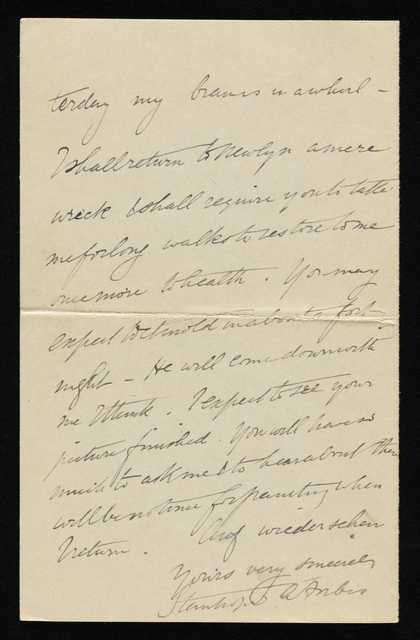 terday my brain is in a whirl –
I shall return to Newlyn a mere
wreck & shall require you to take
me for long walks to restore to me
once more to health. You may
expect Detmold in about a fort-
night – He will come down with
me I think. I expect to see your
picture finished. You will have so
much to ask me & to hear about there
will be no time for painting when
I return. Auf wiedersehen
Yours very sincerely
Stanhope A Forbes